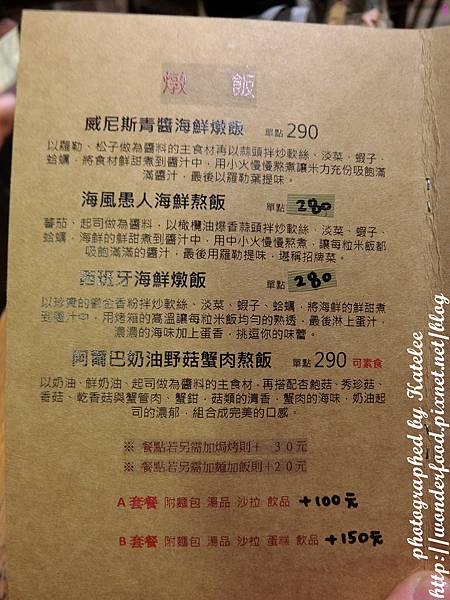 燉 飯
威尼斯青醬海鮮燉飯 單點 290
以羅勒、松子做為醬料的主食材再以蒜頭拌炒軟絲、淡菜、蝦子、
蛤蠣，將食材鮮甜煮到醬汁中，用小火慢慢熬煮讓米力充份吸飽滿
滿醬汁，最後以羅勒葉提味。
海風愚人海鮮熬飯 單點 280
蕃茄、起司做為醬料，以橄欖油爆香蒜頭拌炒軟絲、淡菜、蝦子、
蛤蠣，海鮮的鮮甜煮到醬汁中，用中小火慢慢熬煮，讓每粒米飯都
吸飽滿滿的醬汁，最後用羅勒提味，堪稱招牌菜。
西班牙海鮮燉飯 單點 280
以珍貴的鬱金香粉拌炒軟絲、淡菜、蝦子、蛤蠣，將海鮮的鮮甜煮
到醬汁中，用烤箱的高溫讓每粒米飯均勻的熟透，最後淋上蛋汁，
濃濃的海味加上蛋香，挑逗你的味蕾。
阿爾巴奶油野菇蟹肉熬飯 單點 290 可素食
以奶油、鮮奶油、起司做為醬料的主食材，再搭配杏鮑菇、秀珍菇、
香菇、乾香菇與蟹管肉、蟹鉗，菇類的清香，蟹肉的海味，奶油起
司的濃郁，組合成完美的口感。
※ 餐點若另需加焗烤則＋ 30元
※ 餐點若另需加麵加飯則＋20元
A 套餐 附麵包 湯品 沙拉 飲品 +100元
B 套餐 附麵包 湯品 沙拉 蛋糕 飲品 +150元
photographed by Katelee
http://wonderfood.pixnet.net/blog